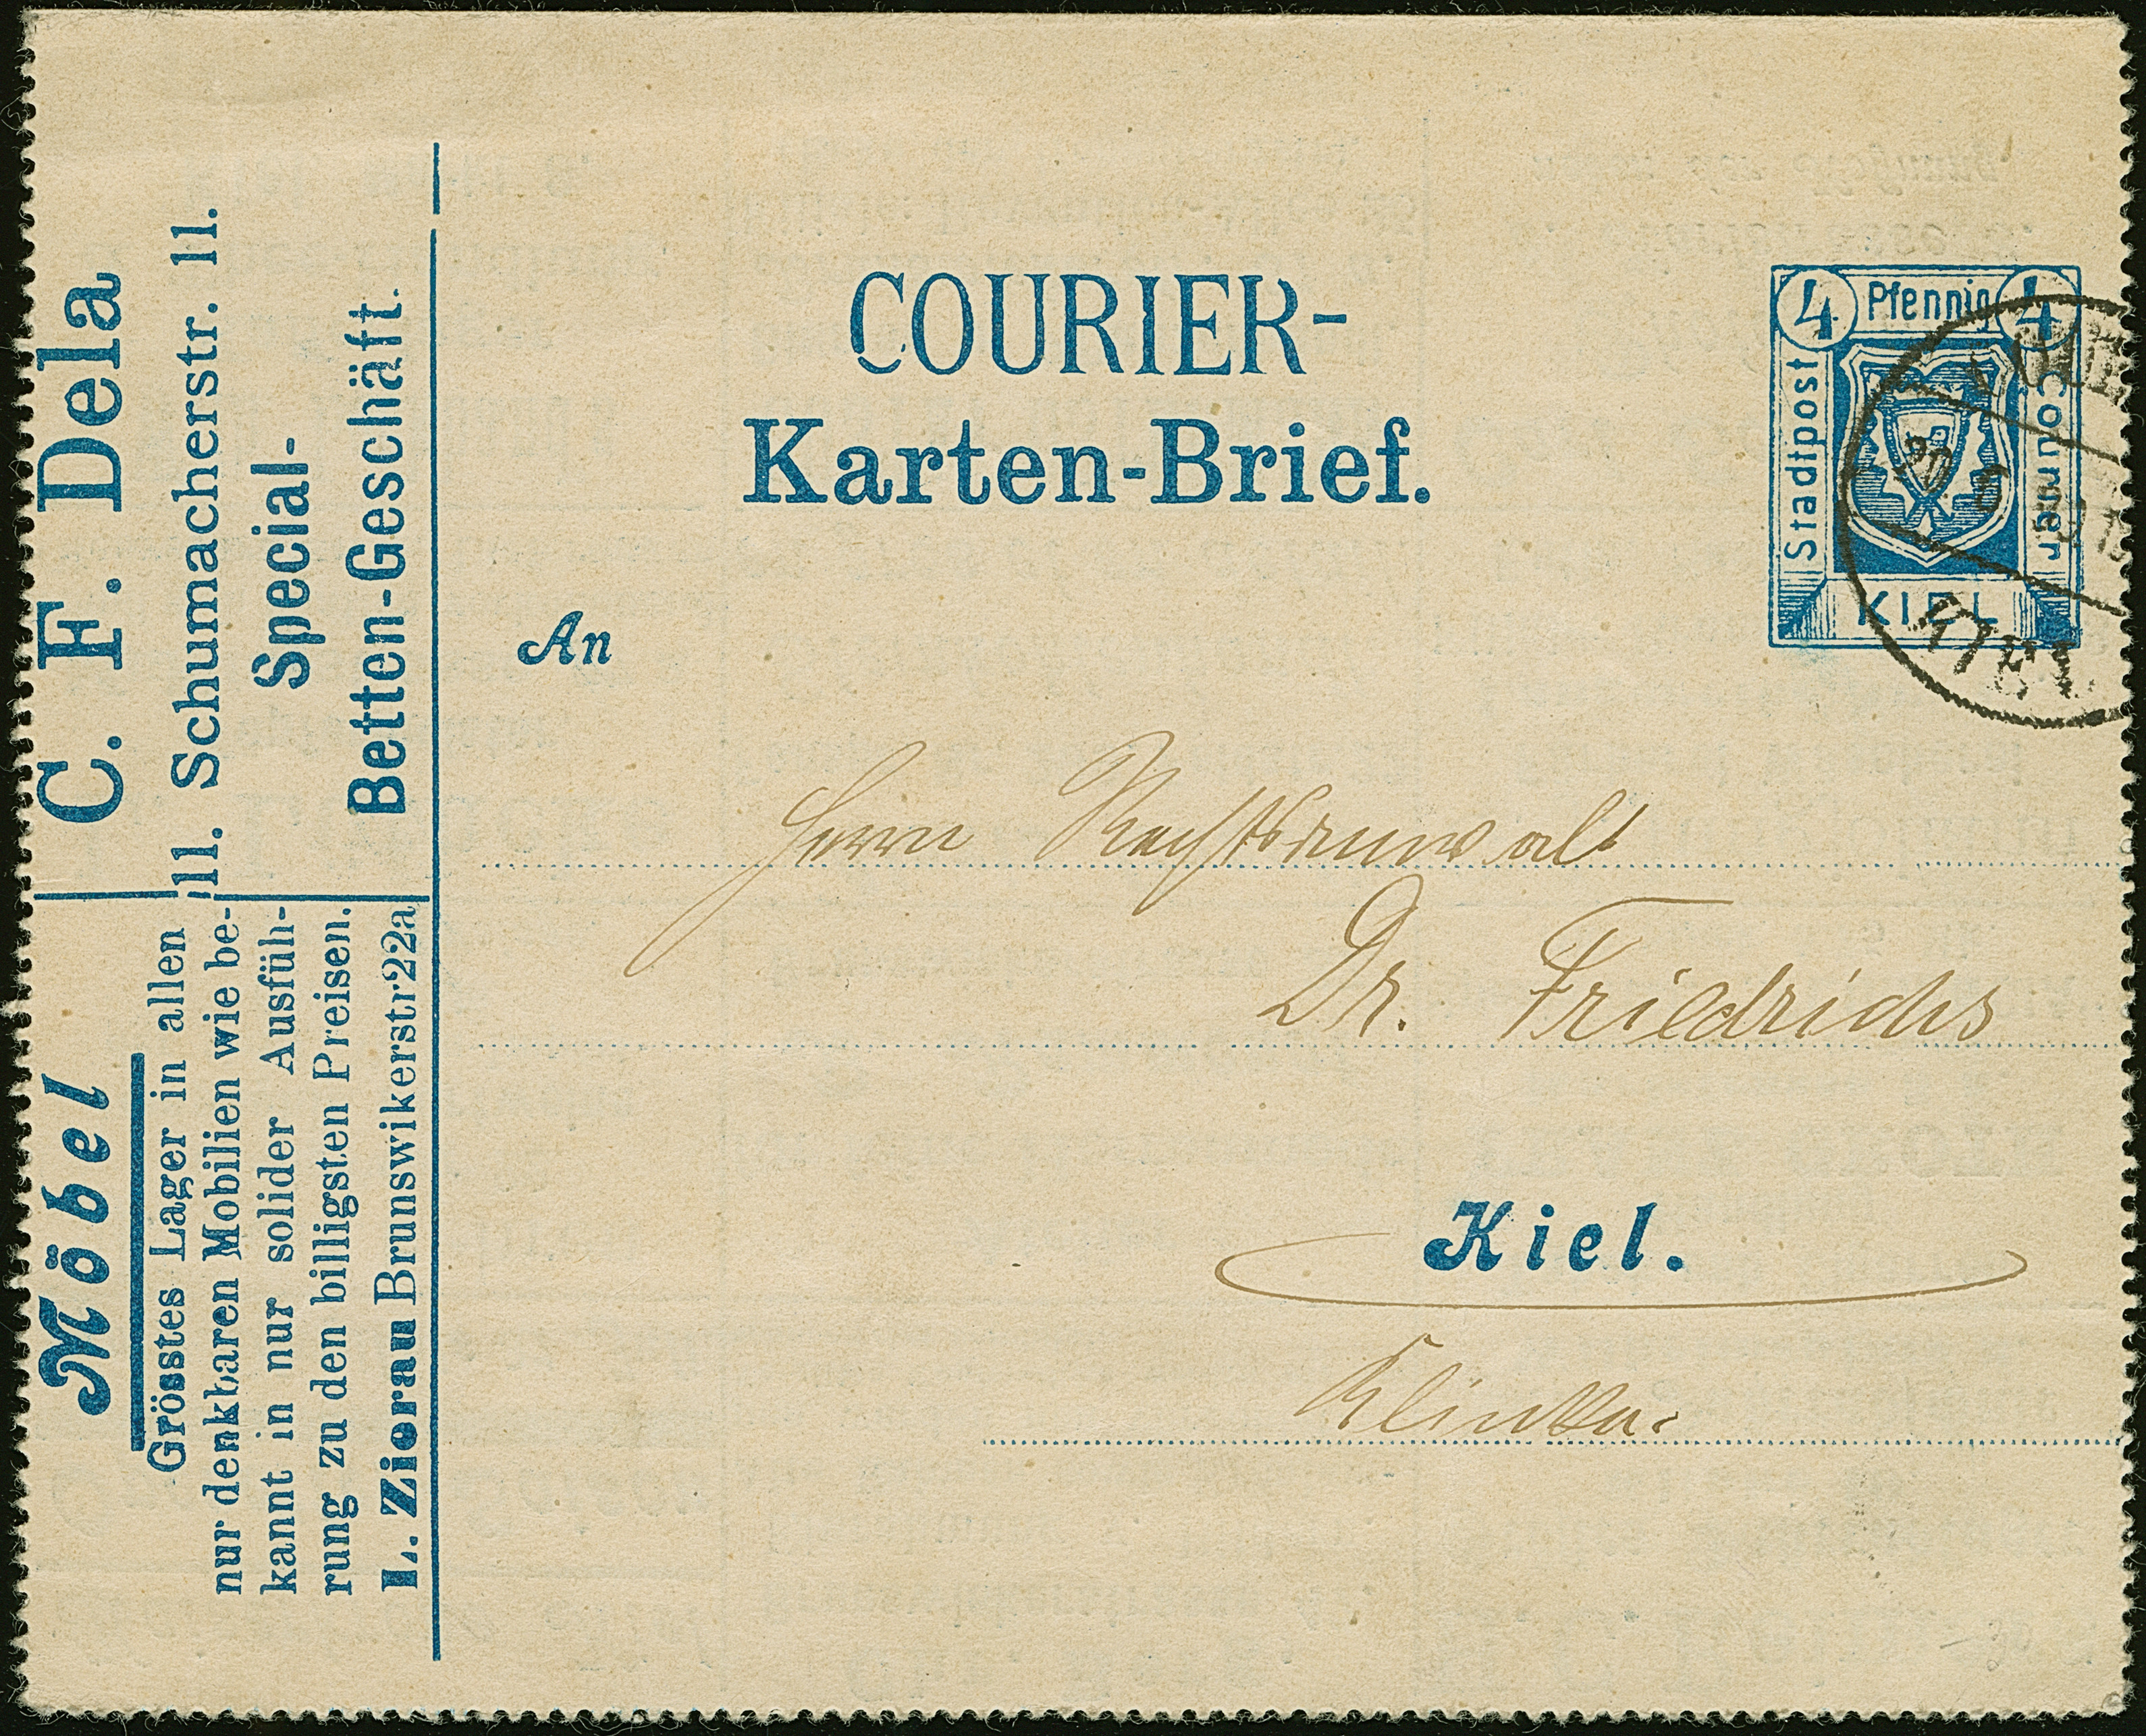 C. F. Dela
11. Schumacherstr. 11.
Special-
Betten-Geschäft.
Möbel
Grösstes Lager in allen
nur denkbaren Mobilien wie be-
kannt in nur solider Ausfüh-
rung zu den billigsten Preisen.
L. Zierau Brunswikerstr22a
COURIER-
Karten-Brief.
4 Pfennig 4
Stadtpost
Courier
KIEL
20. 6
KIEL
An
Herrn Rechtsanwalt
Dr. Friedrichs
Kiel.